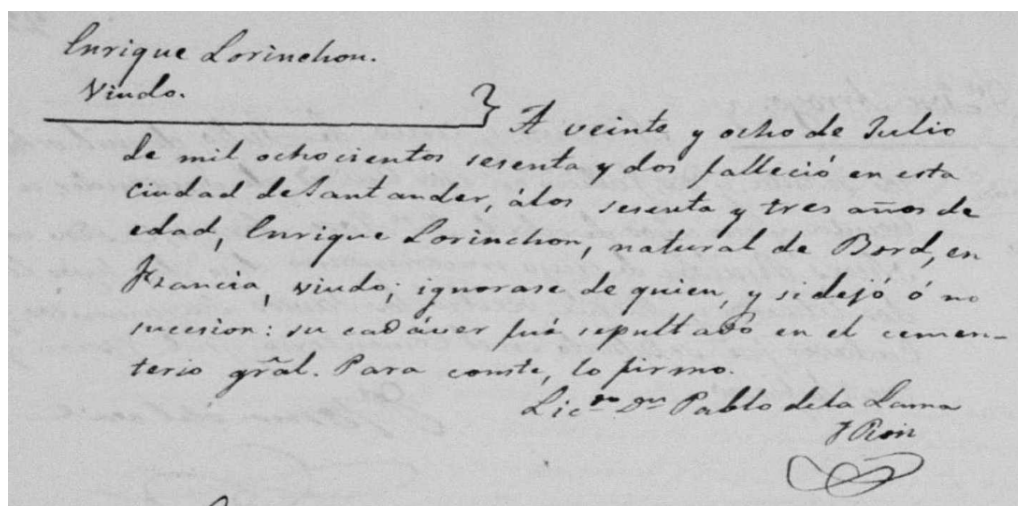 Enrique Lorinchon.
Viudo.
A veinte y ocho de Julio
de mil ochocientos sesenta y dos falleció en esta
ciudad de Santander, alos sesenta y tres años de
edad, Enrique Lorinchon, natural de Bord, en
Francia, viudo; ignorase de quien, y si dejó ó no
sucesion: su cadáver fué sepultado en el cemen-
terio gral. Para conste, lo firmo.
Licdo Dn Pablo dela Lama